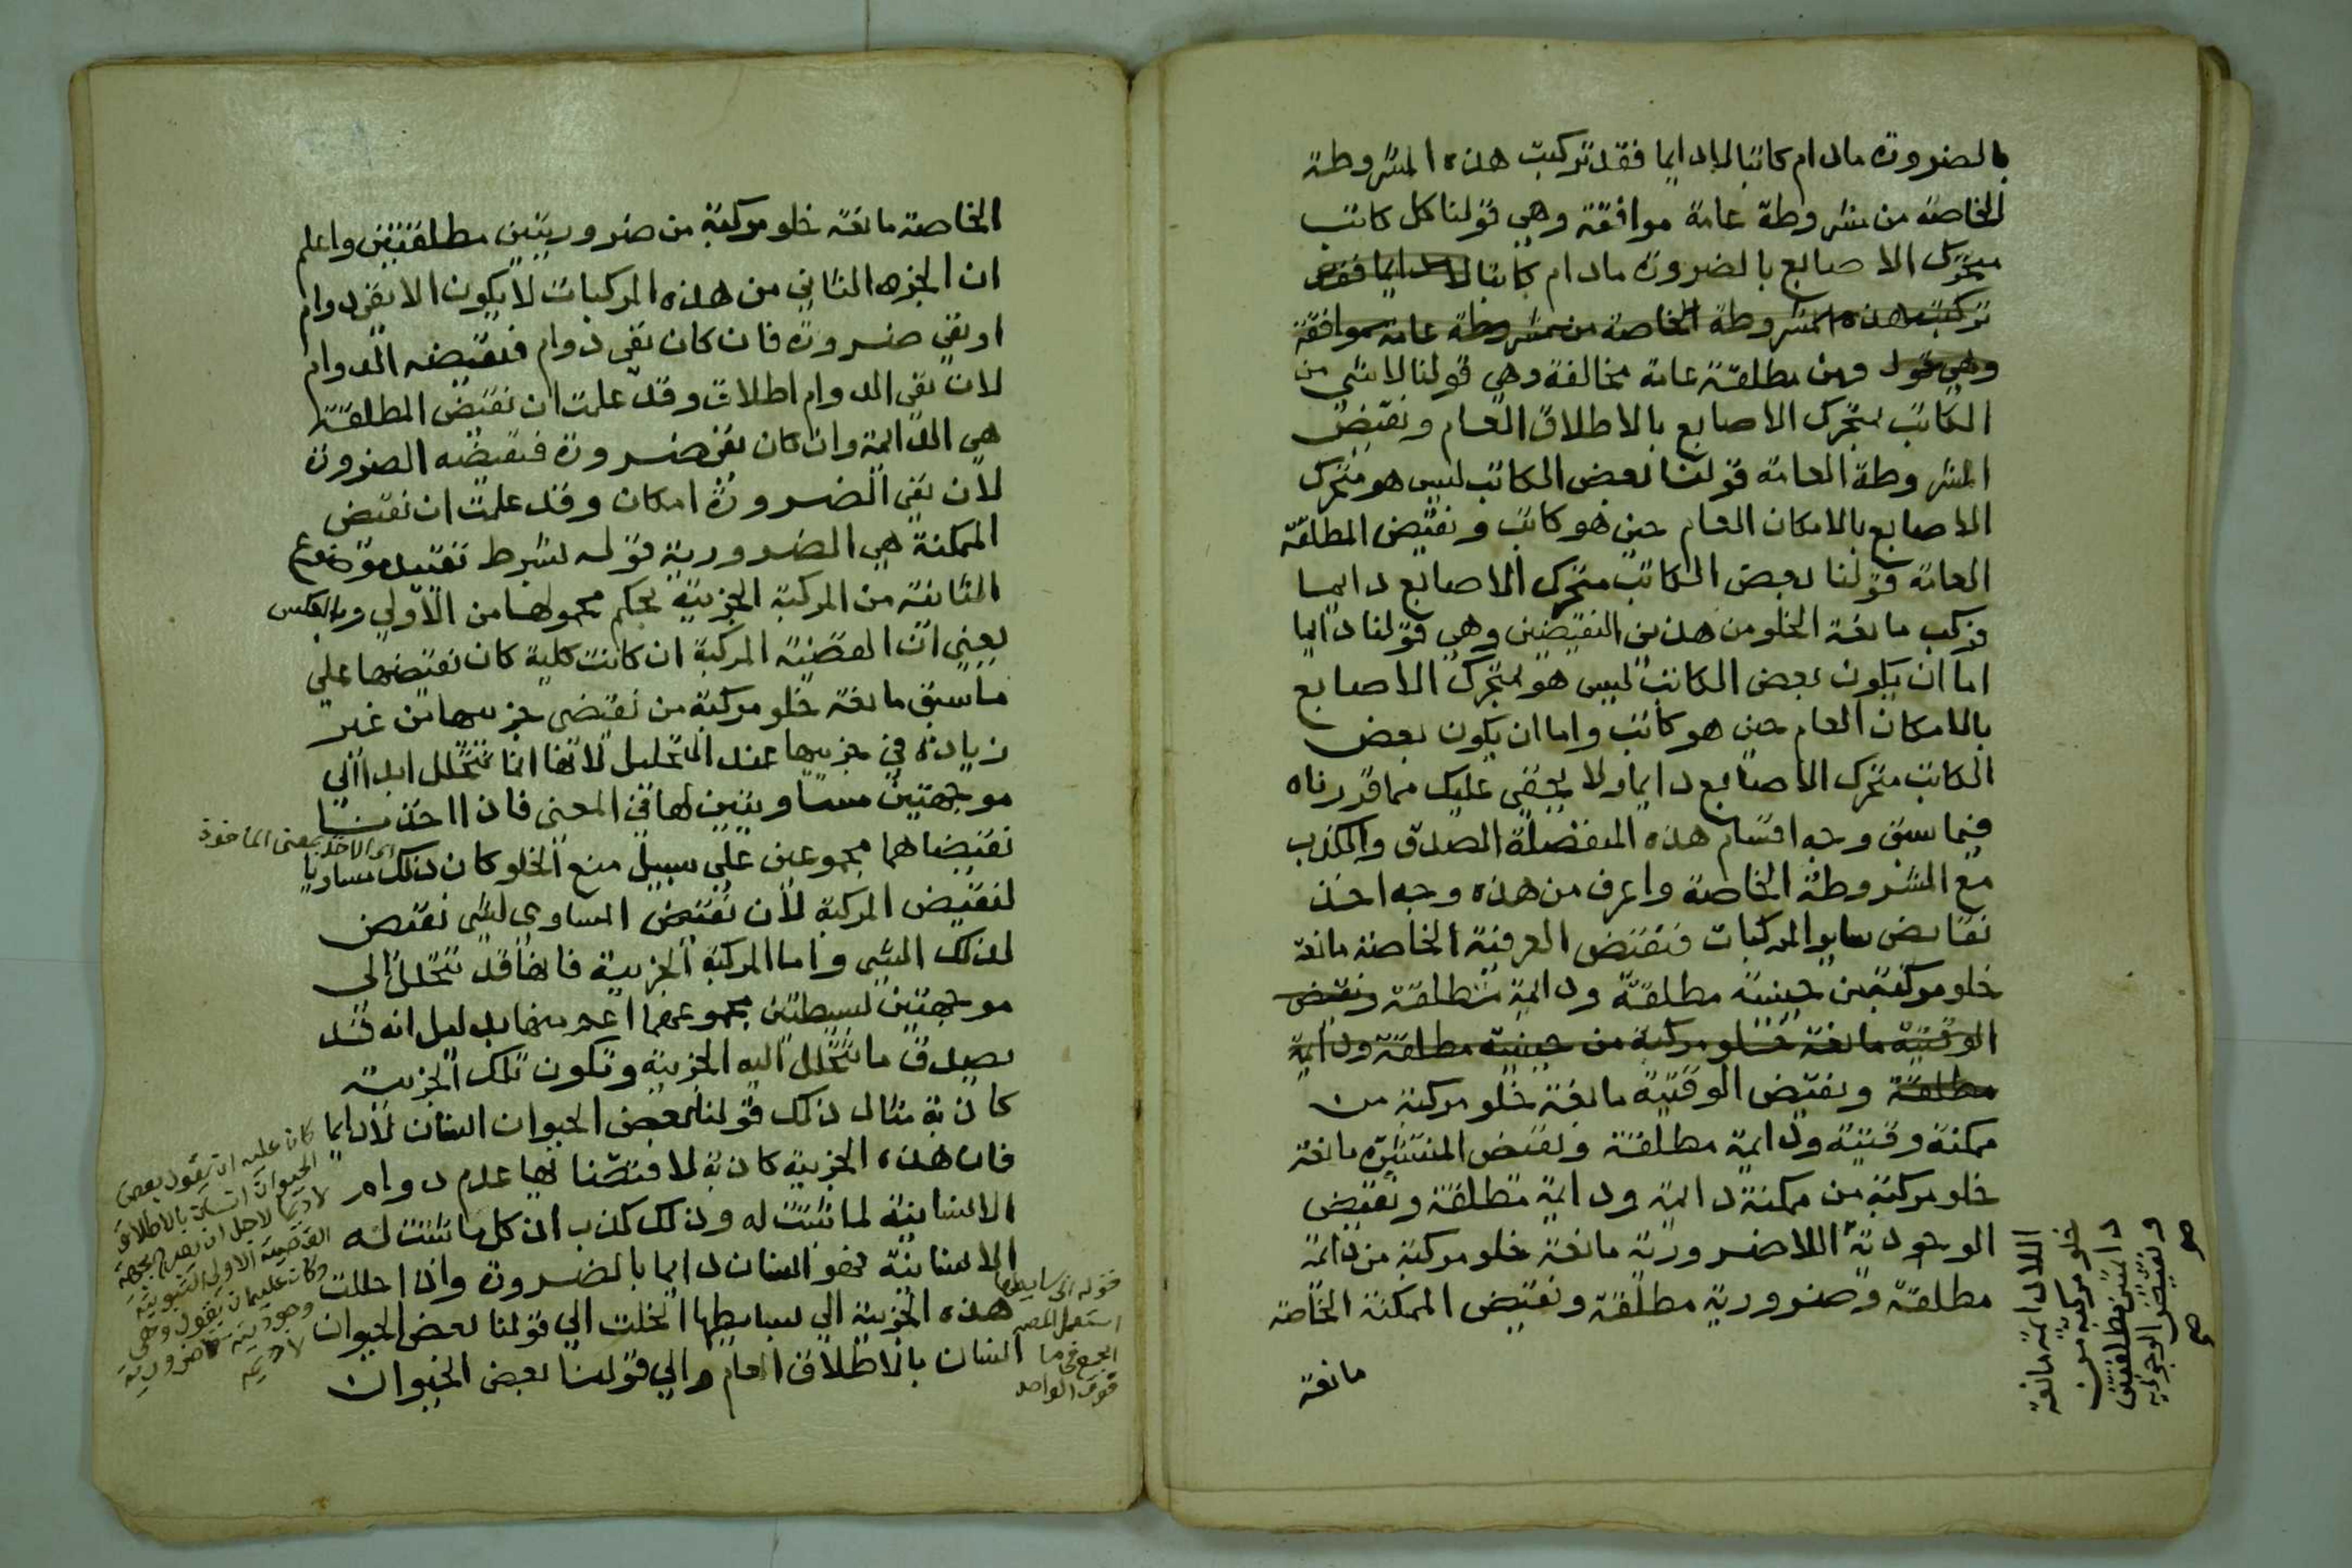 بالضرورة مادام كاتبا لا دايما فقد تركبت هذه المشروطة
الخاصة من مشروطة عامة موافقة وهي قولنا كل كاتب
متحرك الاصابع بالضرورة مادام كاتبا لا دايما فقد
تركبت هذه المشروطة الخاصة من مشروطة عامة موافقة
وهي قول ومن مطلقة عامة مخالفة وهي قولنا لا شي من
الكاتب بمتحرك الاصابع بالاطلاق العام ونقيض
المشروطة العامة قولنا بعض الكاتب ليس هو متحرك
الاصابع بالامكان العام حين هو كاتب ونقيض المطلقة
العامة قولنا بعض الكاتب متحرك الاصابع دايما
فركب مانعة الخلو من هذين النقيضين وهي قولنا دايما
اما ان يكون بعض الكاتب ليس هو بمتحرك الاصابع
بالامكان العام حين هو كاتب واما ان يكون بعض
الكاتب متحرك الاصابع دايما ولا يخفى عليك مما قررناه
فيما سبق وجه اقتسام هذه المنفصلة الصدق والكذب
مع المشروطة الخاصة واعرف من هذه وجه اخذ
نقايض ساير المركبات فنقيض العرفية الخاصة مانعة
خلو مركبة من حينية مطلقة ودايمة مطلقة ونقيض
الوقتية مانعة خلو مركبة من حينية مطلقة ودايمة
مطلقة ونقيض الوقتية مانعة خلو مركبة من
ممكنة وقتية ودايمة مطلقة ونقيض المنتشرة مانعة
خلو مركبة من ممكنة دايمة ودايمة مطلقة ونقيض
الوجودية اللاضرورية مانعة خلو مركبة من دايمة
مطلقة وضرورية مطلقة ونقيض الممكنة الخاصة
مانعة
ونقيض الوجودية
اللادايمة مانعة
خلو مركبة من
دايمتين مطلقتين
صح
الخاصة مانعة خلو مركبة من ضروريتين مطلقتين واعلم
ان الجزء الثاني من هذه المركبات لا يكون الا نفي دوام
او نفي ضرورة فان كان نفي دوام فنقيضه الدوام
لان نفي الدوام اطلاق وقد علمت ان نقيض المطلقة
هي الدايمة وان كان نفي ضرورة فنقيضه الضرورة
لان نفي الضرورة امكان وقد علمت ان نقيض
الممكنة هي الضرورية قوله بشرط تقييد موضوع
الثانية من المركبة الجزيية بحكم محمولها من الاولي وبالعكس
يعني ان القضية المركبة ان كانت كلية كان نقيضها علي
ما سبق مانعة خلو مركبة من نقيضي جزييها من غير
زيادة في جزييها عند التحليل لانها انما تتحلل ابدا الي
موجهتين مساويتين لها في المعني فاذا اخذنا
نقيضاهما مجموعين علي سبيل منع الخلو كان ذلك مساويا
لنقيض المركبة لان نقيض المساوي لشي نقيض
لذلك الشي واما المركبة الجزيية فانها قد تتحلل الى
موجهتين بسيطتين مجموعهما اعم منها بدليل انه قد
يصدق ما تتحلل اليه الجزيية وتكون تلك الجزيية
كاذبة مثال ذلك قولنا بعض الحيوان انسان لا دايما
فان هذه الجزيية كاذبة لاقتضائها عدم دوام
الانسانية لما ثبتت له وذلك كذب ان كل ما ثبتت له
الانسانية فهو انسان دايما بالضرورة واذا حللت
هذه الجزيية الي بسايطها انحلت الي قولنا بعض الحيوان
انسان بالاطلاق العام والي قولنا بعض الحيوان
اي الاخذ بمعنى الماخوذ
كان عليه ان يقول بعض
الحيوان انسان بالاطلاق
قوله الى بسايطها
استعمل المص
الجمع في ما
فوق الواحد